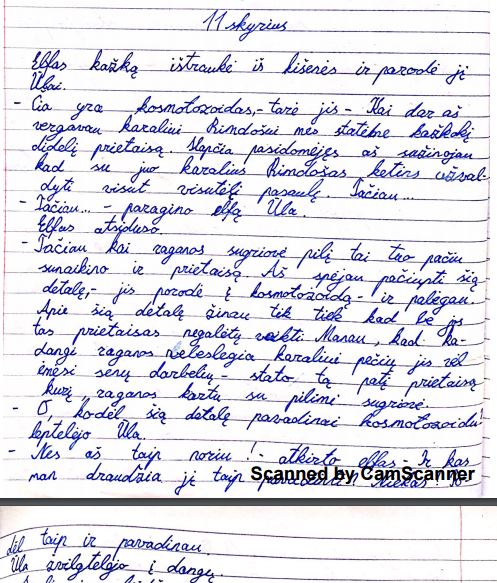 11 skyrius
Elfas kažką ištraukė iš kišenės ir parodė jį
Ūlai.
- Čia yra kosmotozoidas,- tarė jis - Kai dar aš
vergavau karaliui Rimdošui mes statėme kažkokį
didelį prietaisą. Slapčia pasidomėjęs aš sužinojau
kad su juo karalius Rimdošas ketins užval-
dyti visut visutėlį pasaulę. Tačiau...
- Tačiau... - paragino elfą Ūla.
Elfas atsiduso.
- Tačiau kai raganos sugriovė pilį tai tuo pačiu
sunaikino ir prietaisą. Aš spėjau pačiupti šią
detalę,- jis parodė į kosmotozoidą - ir pabėgau.
Apie šią detalę žinau tik tiek kad be jos
tas prietaisas negalėtų veikti. Manau, kad ka-
dangi raganos nebeslegia karaliui pečių jis vėl
ėmėsi senų darbelių - stato tą patį prietaisą
kurį raganos kartu su pilimi sugriovė.
- O, kodėl šią detalę pavadinai kosmotozoidu!
leptelėjo Ūla.
- Nes aš taip noriu! - atkirto elfas - Ir kas
man draudžia jį taip pavadinti? Niekas! To-
Scanned by CamScanner
dėl taip ir pavadinau.
Ūla žvilgtelėjo į dangų